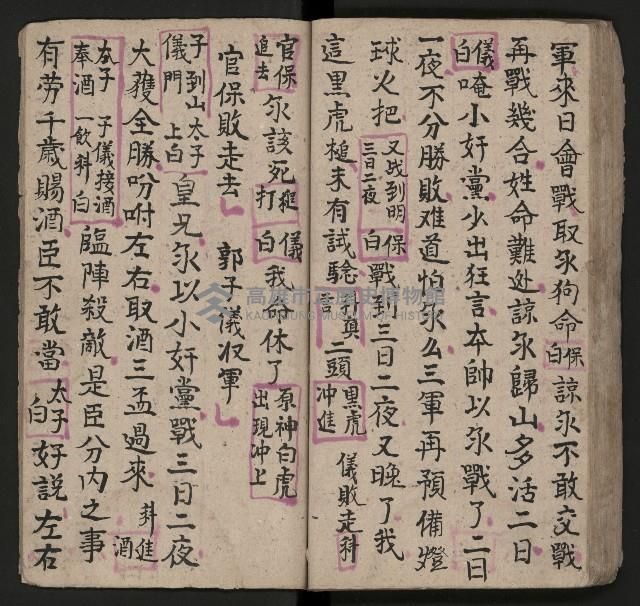 軍來日會戰取尔狗命保白諒尔不敢交戰
再戰幾合姓命難处諒尔歸山多活二日
儀白唵小奸黨少出狂言本帥以尔戰了二日
一夜不分勝敗难道怕尔么三軍再預備燈
球火把又战到明三日二夜保白戰到三日二夜又晚了我
這黑虎槌未有試驗 二頭黑虎冲進儀敗走科
官保追去尔該死 打儀白我命休了原神白虎出現冲上
官保敗走去 郭子儀收軍
子儀到山門太子上白皇兄尔以小奸黨戰三日二夜
大獲全勝吩咐左右取酒三盃過來 進酒
太子奉酒子儀接酒一飲科白臨陣殺敵是臣分内之事
有劳千歲賜酒臣不敢當太子白好説左右
高雄市立歷史博物館
KAOHSIUNG MUSEUM OF HISTORY